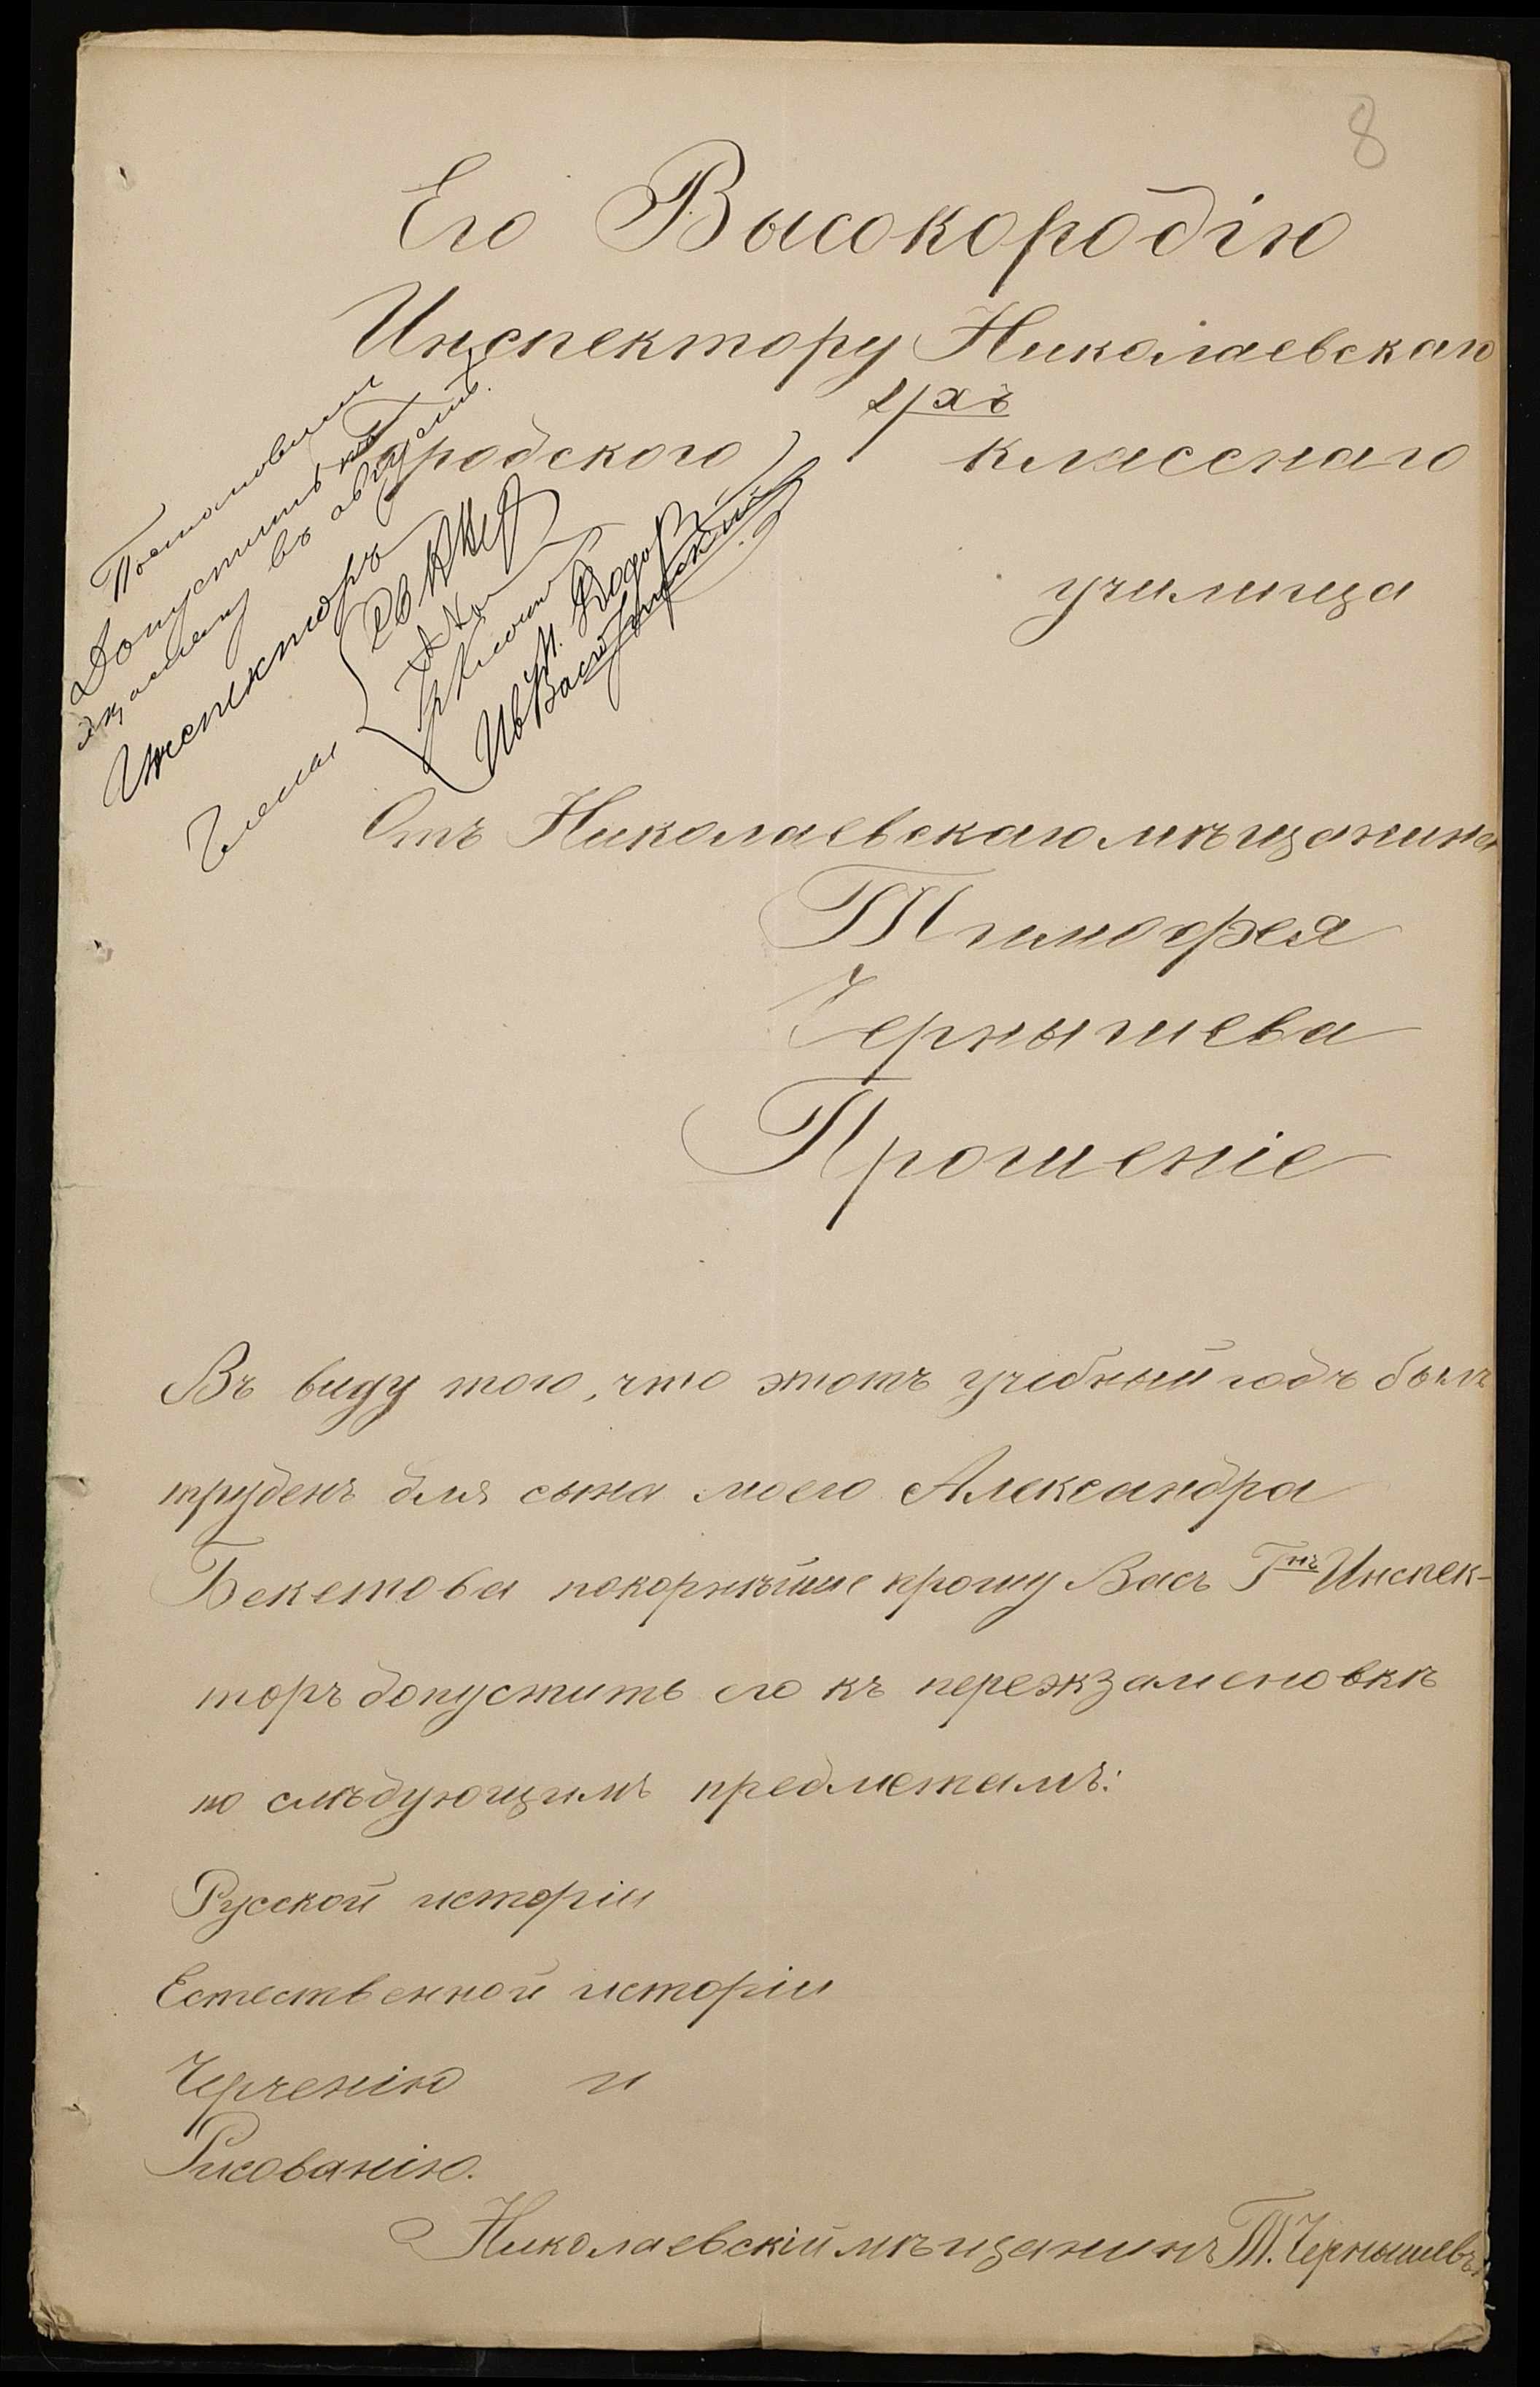 8
Его Высокородію
Инспектору Николаевскаго
Городского 2/хъ класснаго
училища
Постановили
Допустить къ
экзамену въ августѣ.
Инспекторъ
Члены
Отъ Николаевскаго мѣщанина
Тимофея
Чернышева
Прошеніе
Въ виду того, что этотъ учебный годъ былъ
труденъ для сына моего Александра
Бекетова покорнѣйше прошу Васъ Гнъ Инспек-
торъ допустить его къ переэкзаменовкѣ
по слѣдующимъ предметамъ:
Русской исторіи
Естественной исторіи
Черченію и
Рисованію.
Николаевскій мѣщанинъ Т. Чернышевъ